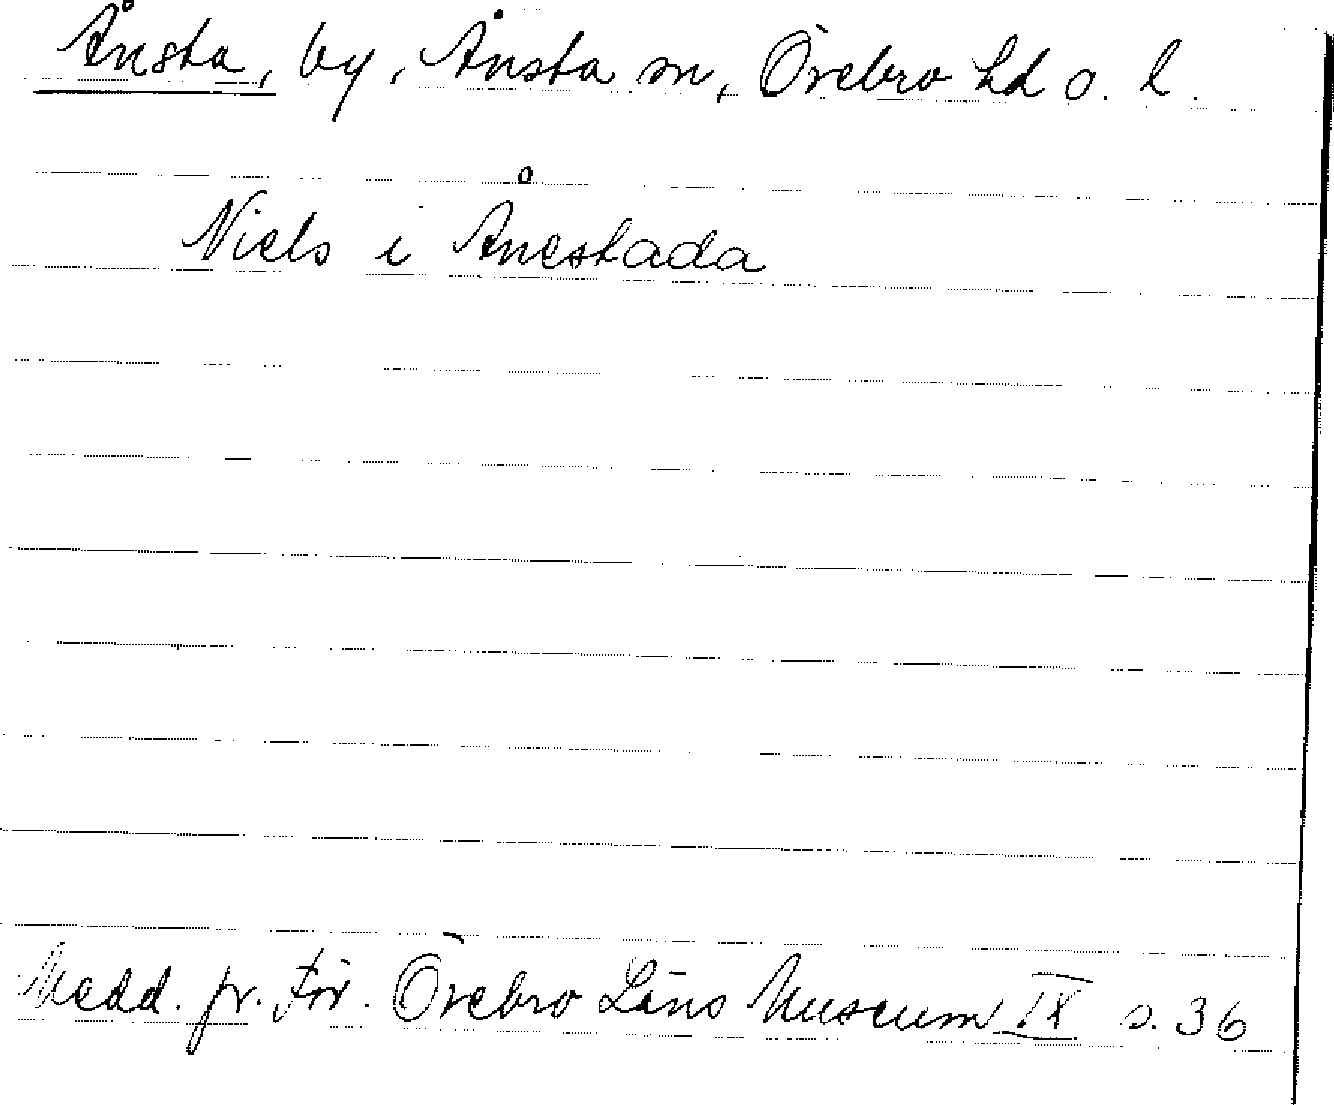 Ånsta, by, Ånsta sn, Örebro hd o. l.
Niels i Ånestada
Medd. fr. För. Örebro Läns Museum IX s. 36